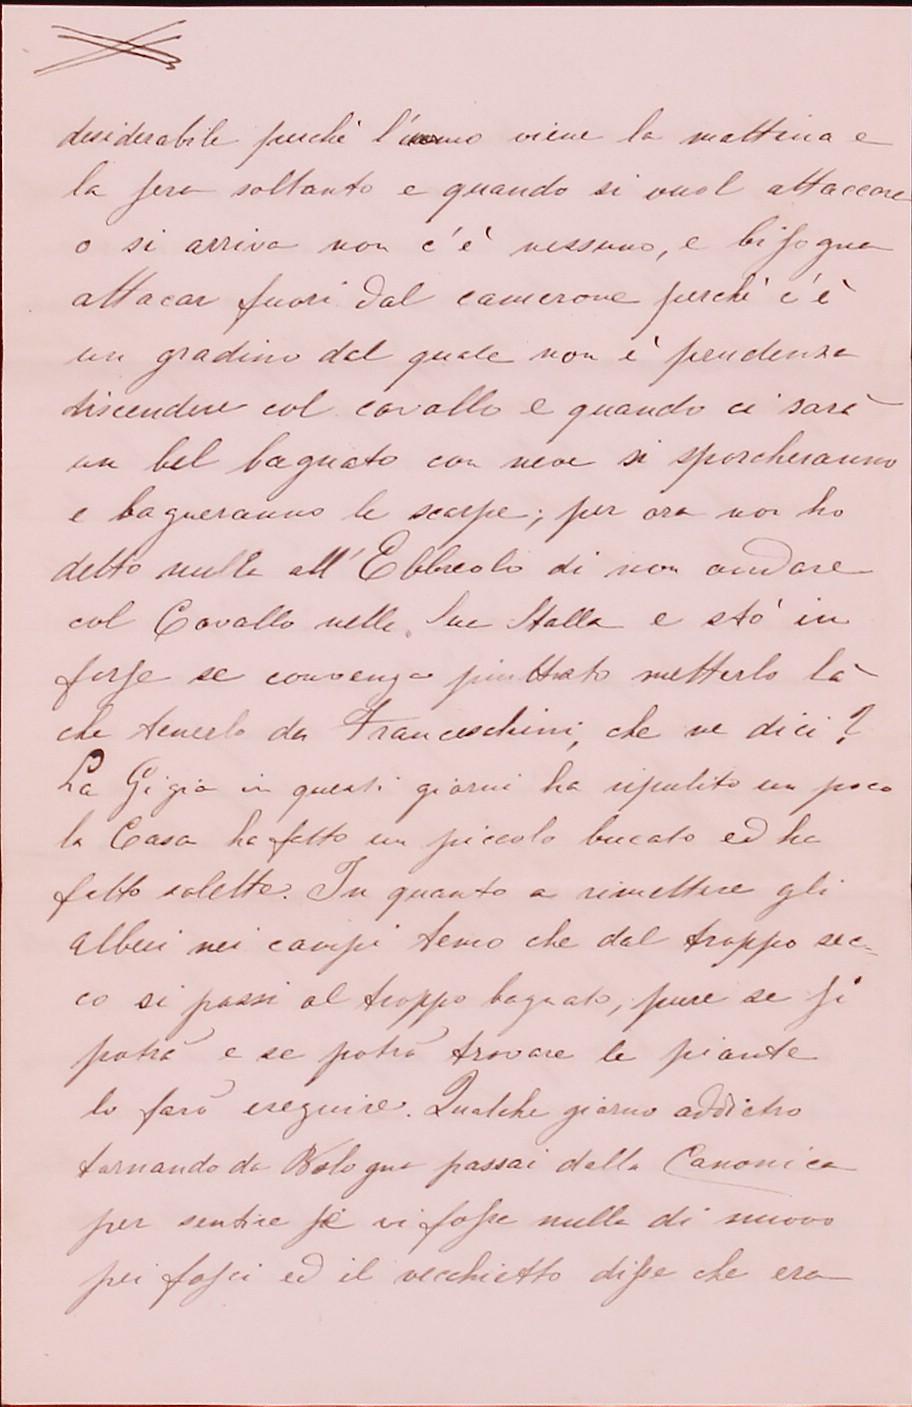 desiderabile perchè l'uomo viene la mattina e
la sera soltanto e quando si vuol attaccare
o si arriva non c'è nessuno, e bisogna
attacar fuori dal camerone perchè c'è
un gradino dal quale non è prudenza
discendere col cavallo e quando ci sarà
un bel bagnato con neve si sporcheranno
e bagneranno le scarpe; per ora non ho
detto nulla all' Ebbreolo di non andare
col Cavallo nella Sue Stalla e stò in
forse se convenga piuttosto metterlo là
che tenerlo da Franceschini, che ne dici?
La Gigia in questi giorni ha ripulito un poco
la Casa ha fatto un piccolo bucato ed ha
fatto solette. In quanto a rimettere gli
alberi nei campi temo che dal troppo sec=
co si passi al troppo bagnato, pure se si
potrà e se potrò trovare le piante
lo farò eseguire. Qualche giorno addietro
tornando da Bologna passai dalla Canonica
per sentire se vi fosse nulla di nuovo
pei fasci ed il vecchietto disse che era